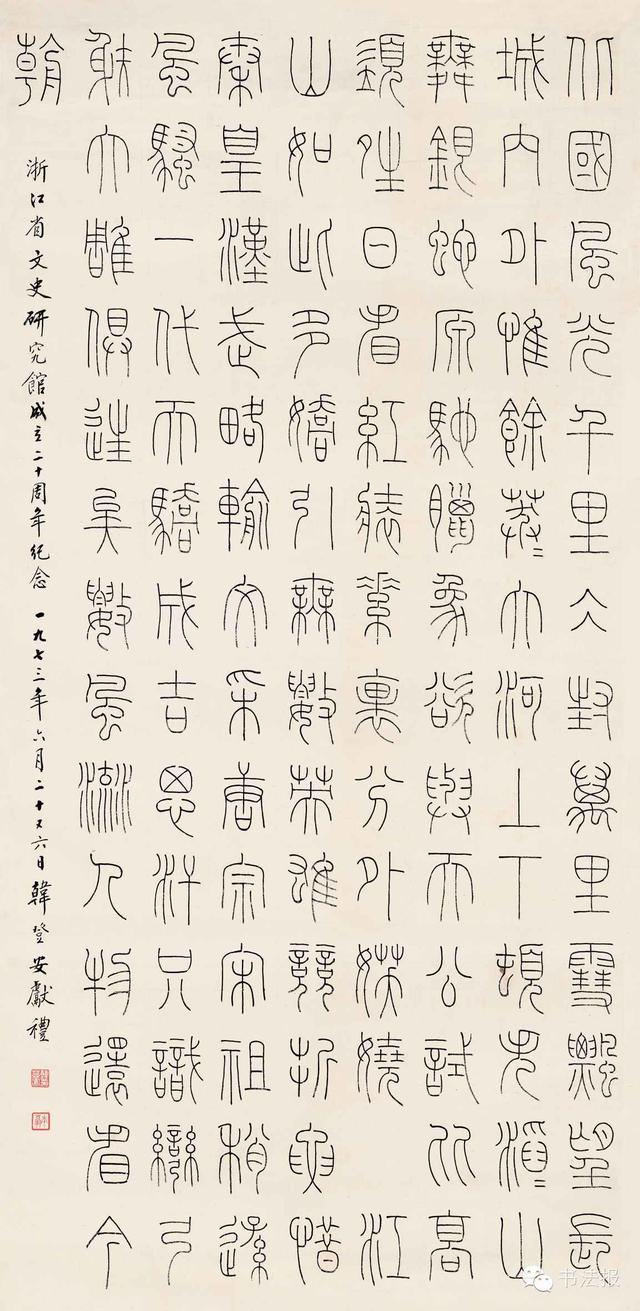 北國風光千里仌封萬里雪飄望長
城內外惟餘莽〻大河上下頓失滔〻山
舞銀蛇原馳臘象欲與天公試比高
須晴日看紅裝素裹分外妖嬈 江
山如此多嬌引無數英雄競折腰惜
秦皇漢武略輸文采唐宗宋祖稍遜
風騷一代天驕成吉思汗只識彎弓
射大雕俱往矣數風流人物還看今
朝
浙江省文史研究館成立二十周年紀念 一九七三年六月二十又六日韓登安獻禮
书法报